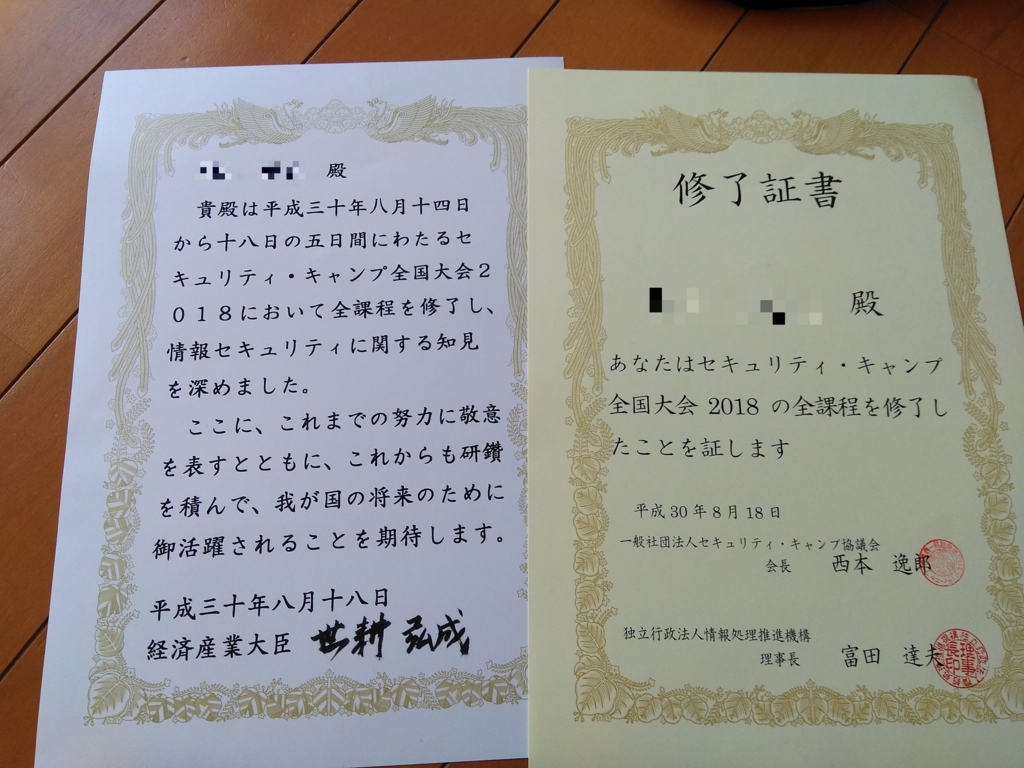 殿
貴殿は平成三十年八月十四日
から十八日の五日間にわたるセ
キュリティ・キャンプ全国大会２
０１８において全課程を修了し、
情報セキュリティに関する知見
を深めました。
ここに、これまでの努力に敬意
を表すとともに、これからも研鑽
を積んで、我が国の将来のために
御活躍されることを期待します。
平成三十年八月十八日
経済産業大臣 世耕 弘成
修了証書
殿
あなたはセキュリティ・キャンプ
全国大会 2018 の全課程を修了し
たことを証します
平成 30 年 8 月 18 日
一般社団法人セキュリティ・キャンプ協議会
会長 西本 逸郎
独立行政法人情報処理推進機構
理事長 富田 達夫